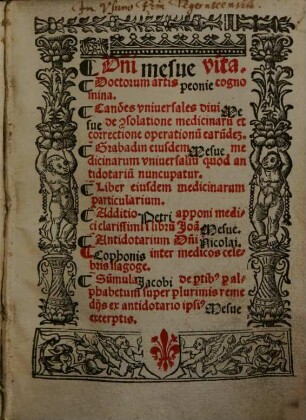 In Usum Frm Tegernseensium
¶ Dni mesue vita.
¶ Doctorum artis peonie cogno
mina.
¶ Canōes vniuersales diui Me
sue de ↄsolatione medicinarū et
correctione operationū earūdē.
¶ Grabadin eiusdem Mesue me
dicinarum vniuersaliū quod an
tidotariū nuncupatur.
¶ Liber eiusdem medicinarum
particularium.
¶ Additio Petri apponi medi
ci clarissimi ī librū Joā. Mesue.
¶ Antidotarium Dn̄i Nicolai.
¶ Cophonis inter medicos cele
bris Isagoge.
¶ Sūmula Jacobi de ꝑtibꝰ ꝑ al
phabetum super plurimis reme
dijs ex antidotario ipsiꝰ Mesue
excerptis.